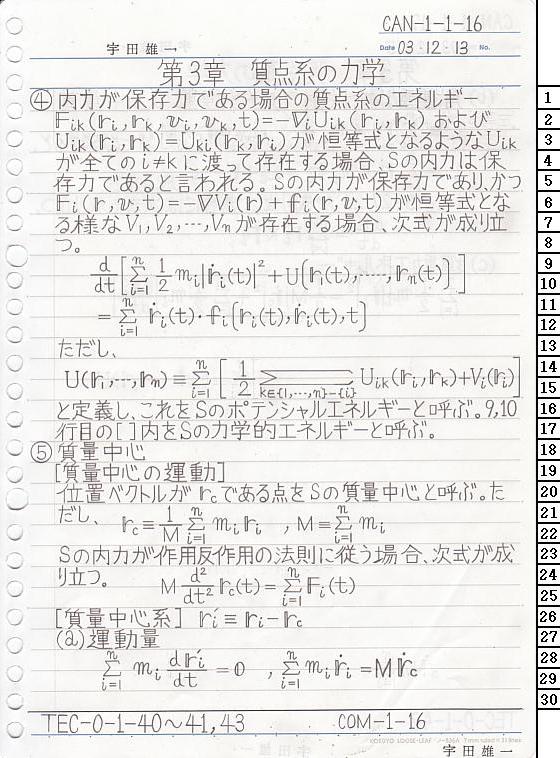 CAN-1-1-16
宇田雄一
Date 03・12・13 No.
第3章 質点系の力学
④ 内力が保存力である場合の質点系のエネルギー
𝔽ik(𝕣i,𝕣k,𝕧i,𝕧k,t)=-∇iUik(𝕣i,𝕣k) および
Uik(𝕣i,𝕣k)=Uki(𝕣k,𝕣i) が恒等式となるようなUik
が全ての i≠k に渡って存在する場合、Sの内力は保
存力であると言われる。Sの内力が保存力であり、かつ
𝔽i(𝕣,𝕧,t)=-∇Vi(𝕣)+𝕗i(𝕣,𝕧,t) が恒等式とな
る様なV1,V2,…,Vnが存在する場合、次式が成り立
つ。
d/dt[Σ_{i=1}^{n} 1/2 mi|𝕣̇i(t)|²+U(𝕣1(t),…,𝕣n(t))]
=Σ_{i=1}^{n} 𝕣̇i(t)・𝕗i(𝕣i(t),𝕣̇i(t),t)
ただし、
U(𝕣1,…,𝕣n)≡Σ_{i=1}^{n}[1/2 Σ_{k∈{1,…,n}-{i}} Uik(𝕣i,𝕣k)+Vi(𝕣i)]
と定義し、これをSのポテンシャルエネルギーと呼ぶ。9,10
行目の[ ]内をSの力学的エネルギーと呼ぶ。
⑤ 質量中心
[質量中心の運動]
位置ベクトルが𝕣cである点をSの質量中心と呼ぶ。た
だし、 𝕣c≡1/M Σ_{i=1}^{n} mi𝕣i , M≡Σ_{i=1}^{n} mi
Sの内力が作用反作用の法則に従う場合、次式が成
り立つ。 M d²/dt² 𝕣c(t)=Σ_{i=1}^{n} 𝔽i(t)
[質量中心系] 𝕣i′≡𝕣i-𝕣c
(a)運動量
Σ_{i=1}^{n} mi d𝕣i′/dt=𝟘 , Σ_{i=1}^{n} mi𝕣̇i=M𝕣̇c
TEC-0-1-40〜41,43 COM-1-16
KOKUYO LOOSE-LEAF
宇田雄一
1
2
3
4
5
6
7
8
9
10
11
12
13
14
15
16
17
18
19
20
21
22
23
24
25
26
27
28
29
30